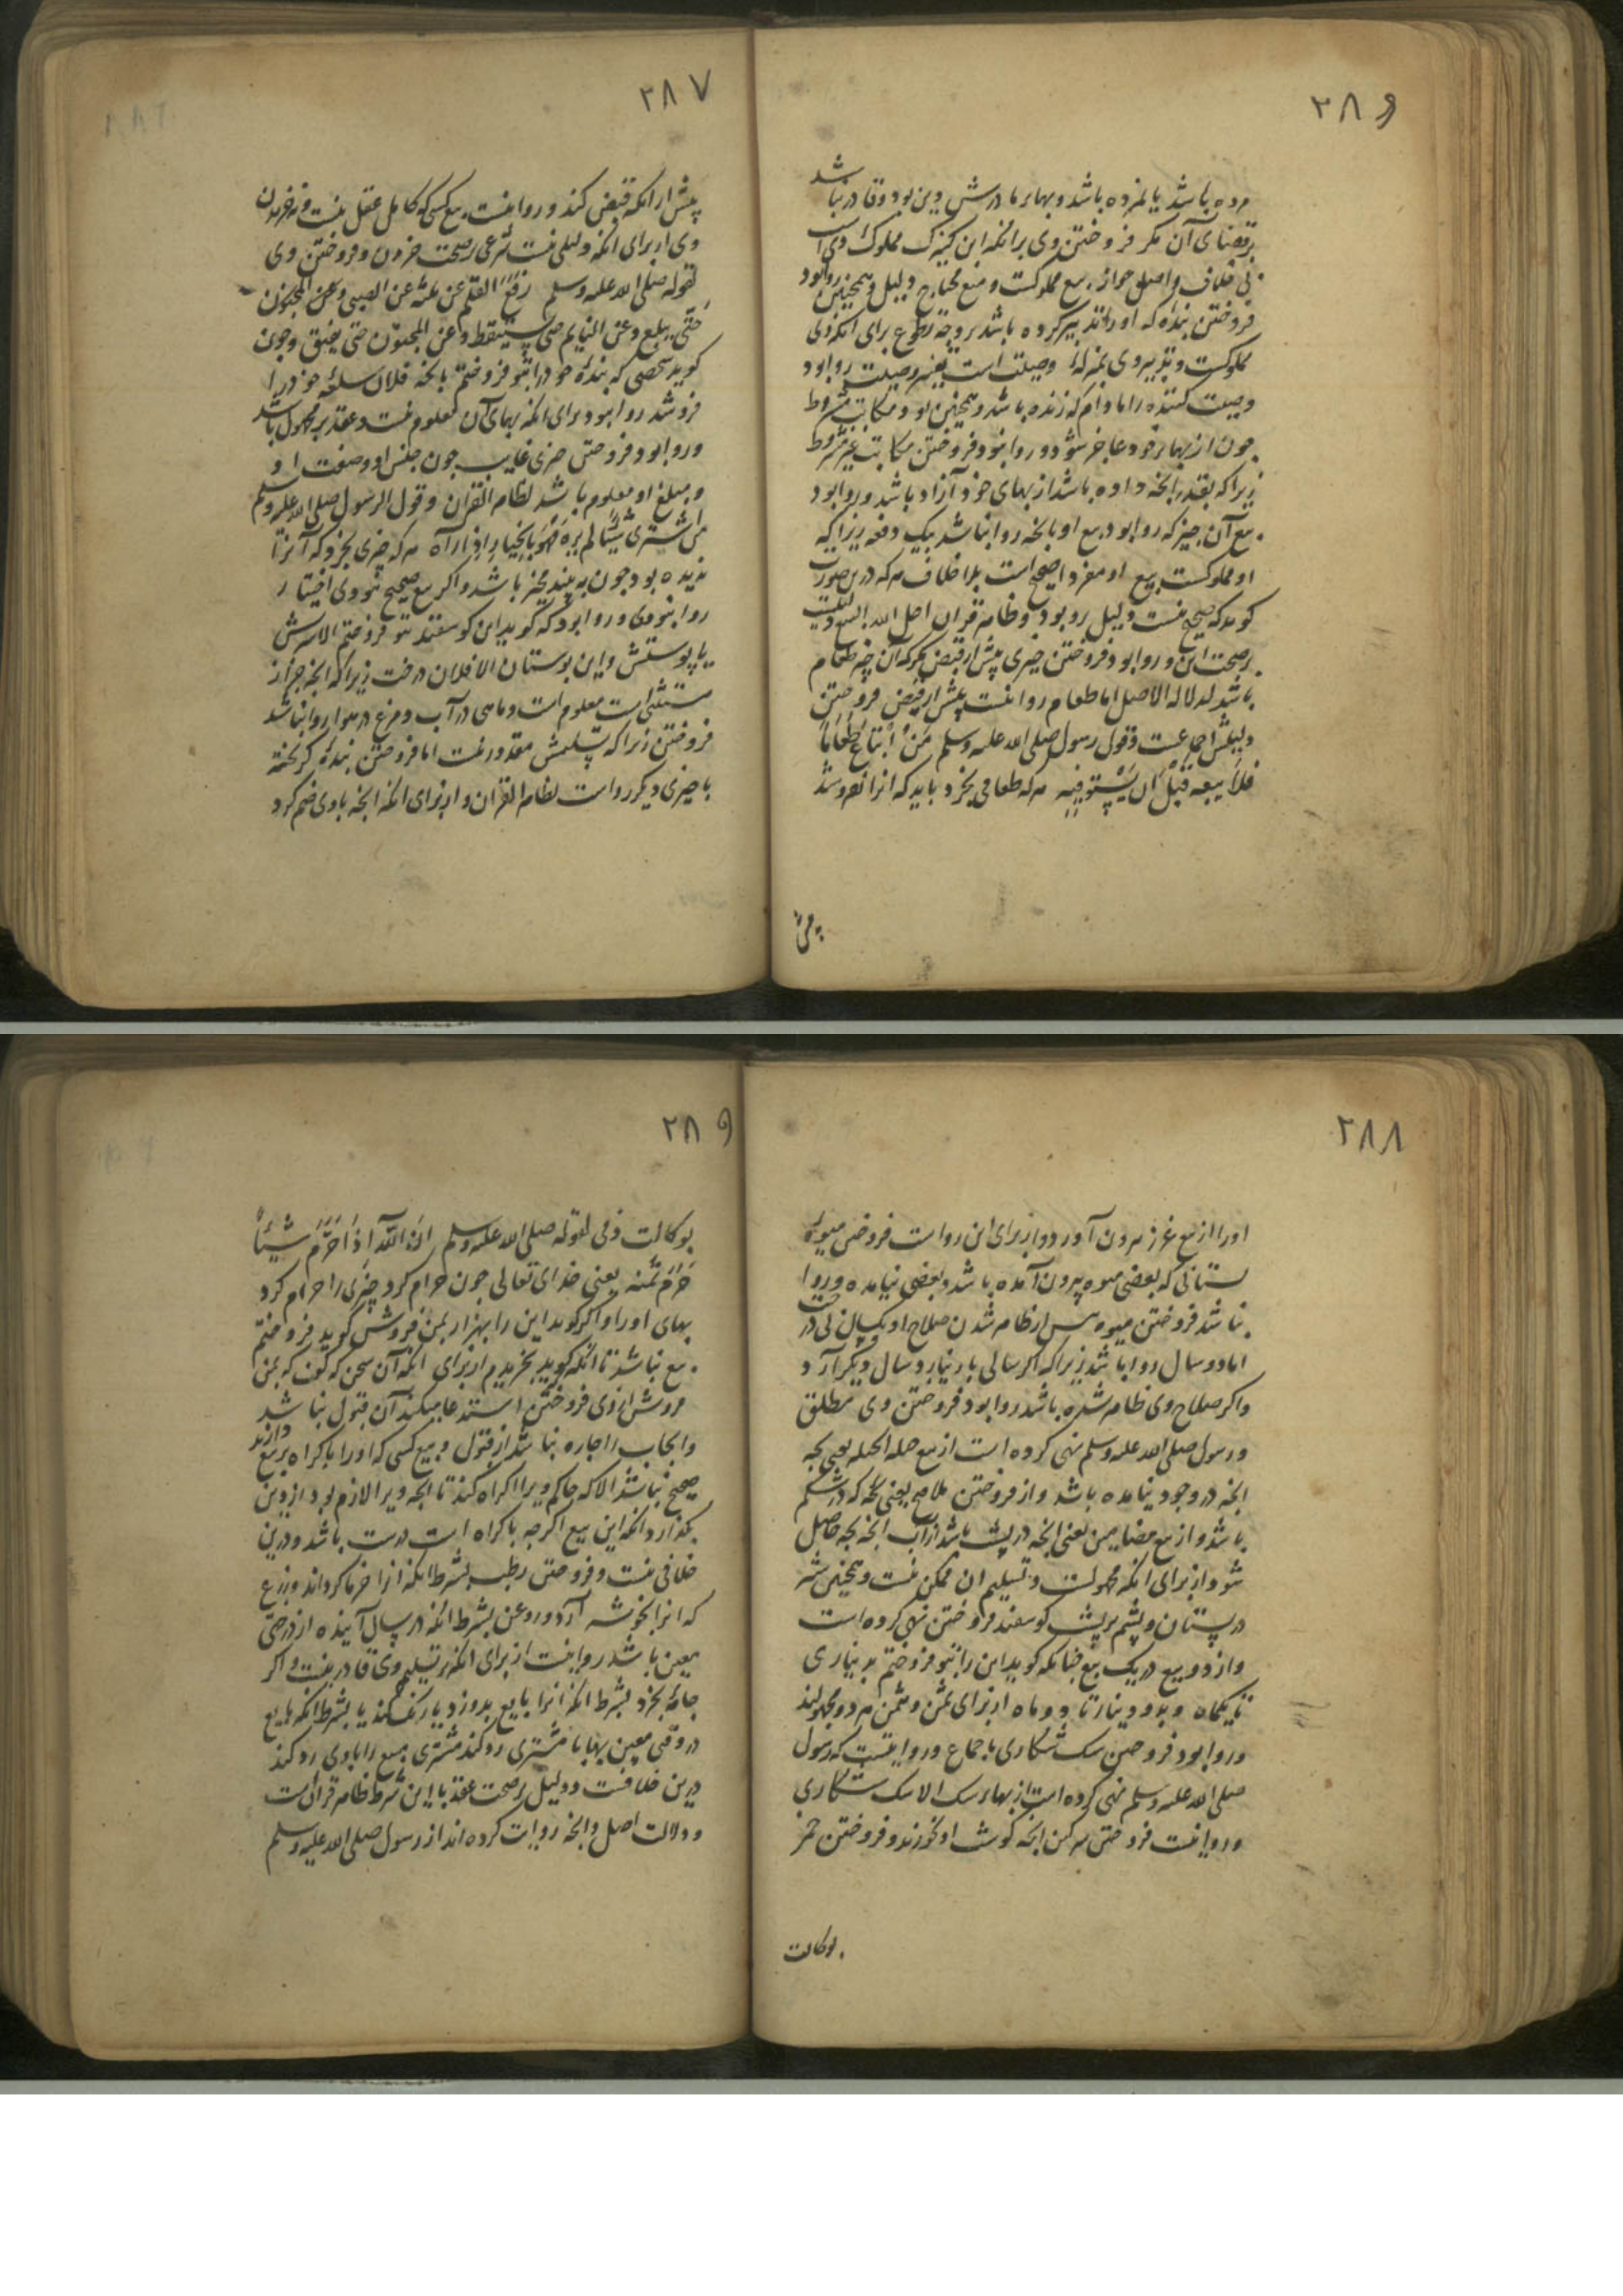 ۲۸۶
مرده باشد یا نمرده باشد و بهابر مادرش دین بود و قادر نباشد
بر قضای آن مگر فروختن وی برانکه این کنیزک مملوک وی است
بی خلاف و اصل جواز بیع مملوکست و منع محتاج دلیل و همچنین روا بود
فروختن بنده که اورا تدبیر کرده باشد بر وجه تطوع برای انکه وی
مملوکست و تدبیر وی بمنزله وصیت است تغییر وصیت روا بود
وصیت کننده را مادام که زنده باشد و همچنین بود مکاتب مشروط
چون از بهابر خود عاجز شود و روا نبود فروختن مکاتب غیر مشروط
زیرا که بقدر انچه داده باشد از بهای خود آزاد باشد و روا بود
بیع آن چیز که روا بود بیع او بانچه روا نباشد بیک دفعه زیرا که
او مملوکست بیع او مفردا صحیح است بلا خلاف هر که درین صورت
گوید که صحیح نیست دلیل برو بود و ظاهر قرآن احل الله البیع دلیلست
بر صحت این و روا بود فروختن چیزی پیش از قبض مگر که آن چیز طعام
باشد لدلالة الاصل اما طعام روا نیست پیش از قبض فروختن
دلیلش اجماعست و قول رسول صلی الله علیه وسلم مَنْ اُبْتَاعَ طَعَامًا
فَلَا یبعه قَبْلَ اَن یَسْتَوفِیَه هر که طعامی بخرد باید که انرا نفروشد
پیش
۲۸۷
پیش از انکه قبض کند و روا نیست بیع کسی که کامل عقل نیست و نه خریدن
وی از برای انکه دلیلی نیست شرعی بر صحت خریدن و فروختن وی
لقوله صلی الله علیه وسلم رفع القلم عن ثلثة عن الصبی وعن المجنون
حَتّی یبلغ وعن النایم حتی یستیقظ وعن المجنون حتی یفیق و چون
گوید شخصی که بنده خود را بتو فروختم بانچه فلان سلعه خود را
فروشد روا نبود برای انکه بهای آن معلوم نیست و عقد بر مجهول باشد
و روا بود فروختن چیزی غایب چون جنس او و صفت او
و مبلغ او معلوم باشد لظاهر القرآن و قول الرسول صلی الله علیه وسلم
من اشتری شَیْئًا لم یَرَهُ فَهُوَ بِالْخِیَارِ اِذَا رَآه هر که چیزی بخرد که آنرا
ندیده بود چون به بیند مخیر باشد و اگر بیع صحیح نبودی اختیار
روا نبودی و روا بود که گوید این گوسفند بتو فروختم الا سرش
یا پوستش و این بوستان الا فلان درخت زیرا که انچه جز از
مستثنی است معلوم است و ماهی در آب و مرغ در هوا روا نباشد
فروختن زیرا که تسلیمش مقدور نیست اما فروختن بنده گریخته
با چیزی دیگر رواست لظاهر القرآن و از برای انکه انچه باوی ضم کرد
۲۸۸
اورا از بیع غرر بیرون آورد و از برای این رواست فروختن میوه
بستانی که بعضی میوه بیرون آمده باشد و بعضی نیامده و روا
نباشد فروختن میوه پیش از ظاهر شدن صلاح او یکسال بر درخت
اما دو سال روا باشد زیرا که اگر سالی بار نیارد سال دیگر آرد
و اگر صلاح وی ظاهر شده باشد روا بود فروختن وی مطلق
و رسول صلی الله علیه وسلم نهی کرده است از بیع حبل الحبله یعنی بچه
انچه در وجود نیامده باشد و از فروختن ملاقح یعنی بچه که در شکم
باشد و از بیع مضامین یعنی انچه در پشت باشد از آب انچه بچه حاصل
شود از برای انکه مجهولست و تسلیم ان ممکن نیست و همچنین شیر
در پستان و پشم بر پشت گوسفند فروختن نهی کرده است
و از دو بیع در یک بیع چنانکه گوید این را بتو فروختم بدیناری
تا یکماه و بدو دینار تا دو ماه از برای ثمن و مثمن هر دو مجهولند
و روا بود فروختن سک شکاری باجماع و روایتست که رسول
صلی الله علیه وسلم نهی کرده است از بهاء سک الا سک شکاری
و روا نیست فروختن سرکین انچه گوشت او نخورند و فروختن خمر
بوکالت
۲۸۹
بوکالت ذمی لقوله صلی الله علیه وسلم اِنَّ اللّٰهَ اِذَا حَرَّمَ شَیْئًا
حَرَّمَ ثَمَنَه یعنی خدای تعالی چون حرام کرد چیزی را حرام کرد
بهای اورا و اگر گوید این را بهزار بمن فروش گوید فروختم
بیع نباشد تا انکه گوید بخریدم از برای انکه آن سخن که گفت که بمن
فروش از وی فروختن استدعا میکند آن قبول نباشد
و ایجاب را چاره نباشد از قبول و بیع کسی که اورا باکراه بر بیع دارند
صحیح نباشد الا که حاکم ویرا اکراه کند تا انچه ویرا لازم بود از دین
بگذارد انکه این بیع اگر چه باکراه است درست باشد و درین
خلافی نیست و فروختن رطب بشرط انکه انرا خرما گرداند و زرع
که انرا بخوشه آرد و روغن بشرط انکه در سال آینده از درختی
معین باشد روا نیست از برای انکه بر تسلیم وی قادر نیست و اگر
جامه بخرد بشرط انکه انرا بایع بدوزد یا رنک کند یا بشرط انکه بایع
در وقتی معین بها با مشتری رد کند مشتری مبیع را باوی رد کند
درین خلافست و دلیل بر صحت عقد با این شرط ظاهر قرآنست
و دلالت اصل و انچه روایت کرده اند از رسول صلی الله علیه وسلم